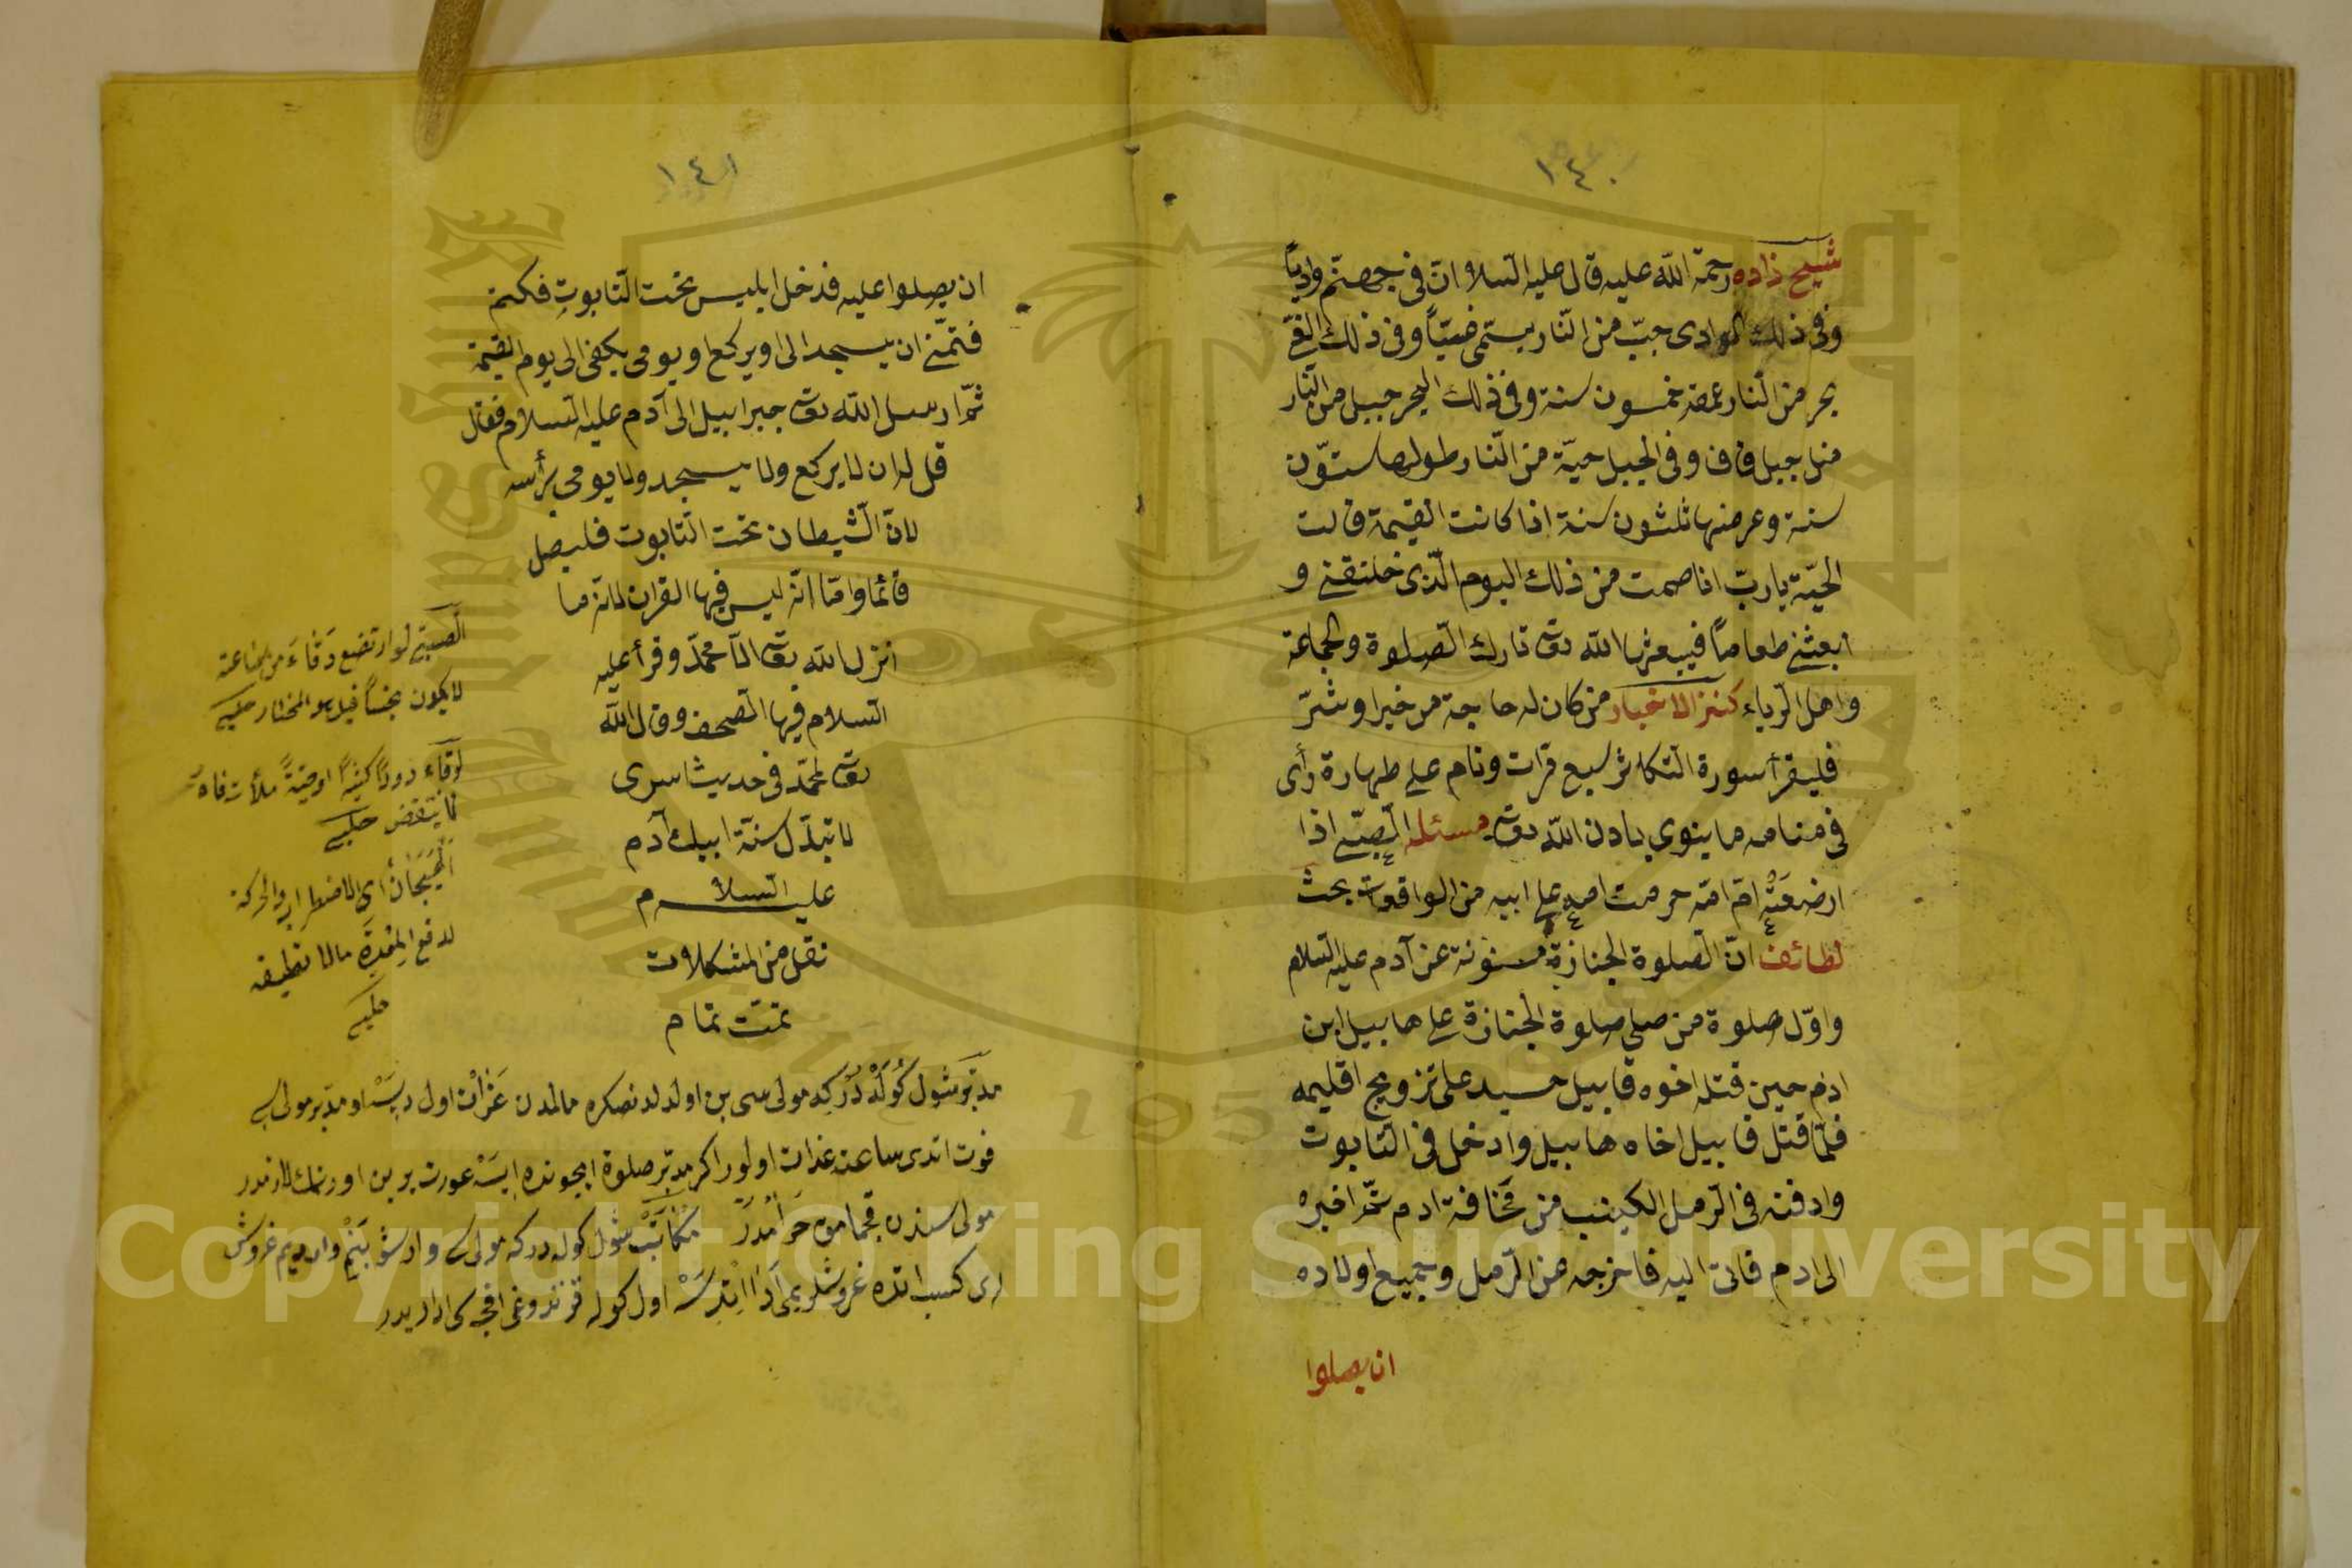 ١٤٠
شيخ زاده رحمة الله عليه قال عليه السلام ان فى جهنّم وادياً
وفى ذلك الوادى جبّ من النّار يسمّى غيّاً وفى ذلك الغىّ
بحر من النّار عمقه خمسون سنة وفى ذلك البحر جبل من النّار
مثل جبل قاف وفى الجبل حيّة من النّار طولها ستّون
سنة وعرضها ثلثون سنة اذا كانت القيمة قالت
الحيّة يا ربّ انا صمت من ذلك اليوم الّذى خلقتنى و
ابعثنى طعاماً فيبعثها الله تعالى تارك الصلوة والجماعة
واهل الرّياء كنز الاخبار من كان له حاجة من خير او شرّ
فليقرأ سورة التكاثر سبع مرّات ونام على طهارة رأى
فى منامه ما ينوي باذن الله تعالى مسئله الصبىّ اذا
ارضعته امّ امّه حرمت امه على ابيه من الواقعات بحث
لطائف انّ الصلوة الجنازة مسنونة عن آدم عليه السلام
واوّل صلوة من صلى صلوة الجنازة على هابيل ابن
ادم حين قتله اخوه قابيل حسيد على تزويج اقليمه
فلمّا قتل قابيل اخاه هابيل وادخل فى التّابوت
وادفنه فى الرّمل الكثيب من مخافة ادم ثمّ اخبره
الى ادم فاتى اليه فاخرجه من الرّمل وجميع اولاده
ان يصلوا
١٤١
ان يصلوا عليه فدخل ابليس تحت التّابوت فكتم
فتمنّى ان يسجد الى او يركع او يومى يكفى الى يوم القيمة
ثمّ ارسل الله تعالى جبرائيل الى آدم عليه السلام فقال
قل له ان لا يركع ولا يسجد ولا يومى برأسه
لانّ الشّيطان تحت التابوت فليصل
قائما وامّا انّه ليس فيها القران لانّه ما
انزل الله تعالى الّا محمّد وقرأ عليه
السلام فيها الصحف وقال الله
تعالى لمحمّد فى حديثا سرى
لا تبدّل سنّة ابيك آدم
عليه السلام
نقل من المشكلات
تمّت تمام
الصبىّ لو ارتضع وقاء من ساعته
لا يكون نجساً قيل هو المختار حلبى
لو قاء دوداً كثيراً او حيّةً ملأت فاه
لا ينتقض حلبى
الهيجان اى الاضطراب والحركة
حلبى
مدبّر شول كولدر كه مولى سى بن اولدكدنصكره مالمدن عزات اول ديسه او مدبّر مولى سى
فوت اتدى ساعتده عذات اولور اكر مدبّر صلوة ايچونده ايسه عورت يرين اورتمك لازمدر
مولى سندن قچمامق حرامدر مكاتب شول كوله دركه مولى سى وارشو